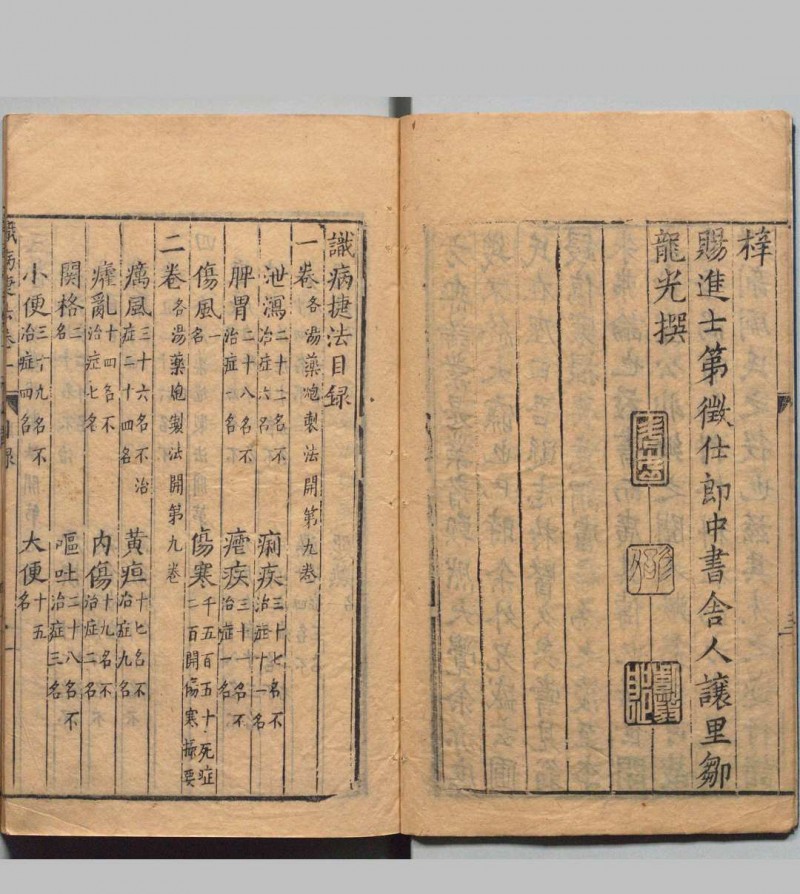 梓
賜進士第徵仕郎中書舍人讓里鄒
龍光撰
識病捷法目録
一卷各湯藥炮製法開第九卷
泄瀉二十二名不治症六名
痢疾三十七名不治症十一名
脾胃二十八名不治症名
瘧疾三十名不治症一名
傷風一名
傷寒千五百五十死症二百開傷寒撮要
二卷各湯藥炮製法開第九卷
癘風三十六名不治症二十四名
黃疸十七名不治症九名
癨亂十四名不治症七名
内傷十九名不治症二名
関格二名
嘔吐二十八名不治症三名
小便三十九名不治症四名
大便十五名